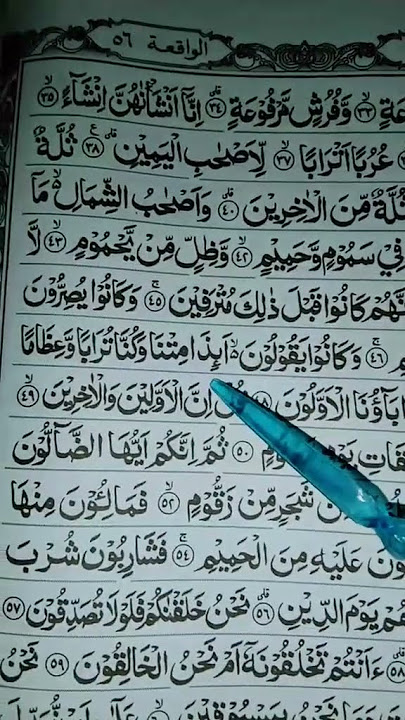 الواقعة ٥٦
ةٍ ﴿٣٣﴾ وَّفُرُشٍ مَّرْفُوْعَةٍ ﴿٣٤﴾ اِنَّآ اَنْشَاْنٰهُنَّ اِنْشَآءً ﴿٣٥﴾
عُرُبًا اَتْرَابًا ﴿٣٧﴾ لِّاَصْحٰبِ الْيَمِيْنِ ﴿٣٨﴾ ثُلَّةٌ
ثُلَّةٌ مِّنَ الْاٰخِرِيْنَ ﴿٤٠﴾ وَاَصْحٰبُ الشِّمَالِ مَآ
فِيْ سَمُوْمٍ وَّحَمِيْمٍ ﴿٤٢﴾ وَّظِلٍّ مِّنْ يَّحْمُوْمٍ ﴿٤٣﴾ لَّا
نَّهُمْ كَانُوْا قَبْلَ ذٰلِكَ مُتْرَفِيْنَ ﴿٤٥﴾ وَكَانُوْا يُصِرُّوْنَ
﴿٤٦﴾ وَكَانُوْا يَقُوْلُوْنَ اَىِٕذَا مِتْنَا وَكُنَّا تُرَابًا وَّعِظَامًا
اٰبَآؤُنَا الْاَوَّلُوْنَ ﴿٤٨﴾ قُلْ اِنَّ الْاَوَّلِيْنَ وَالْاٰخِرِيْنَ ﴿٤٩﴾
﴿٥٠﴾ ثُمَّ اِنَّكُمْ اَيُّهَا الضَّآلُّوْنَ
مِنْ شَجَرٍ مِّنْ زَقُّوْمٍ ﴿٥٢﴾ فَمَالِـُٔوْنَ مِنْهَا
عَلَيْهِ مِنَ الْحَمِيْمِ ﴿٥٤﴾ فَشَارِبُوْنَ شُرْبَ
هُمْ يَوْمَ الدِّيْنِ ﴿٥٦﴾ نَحْنُ خَلَقْنٰكُمْ فَلَوْلَا تُصَدِّقُوْنَ ﴿٥٧﴾
﴿٥٨﴾ ءَاَنْتُمْ تَخْلُقُوْنَهٗٓ اَمْ نَحْنُ الْخَالِقُوْنَ ﴿٥٩﴾ نَحْنُ